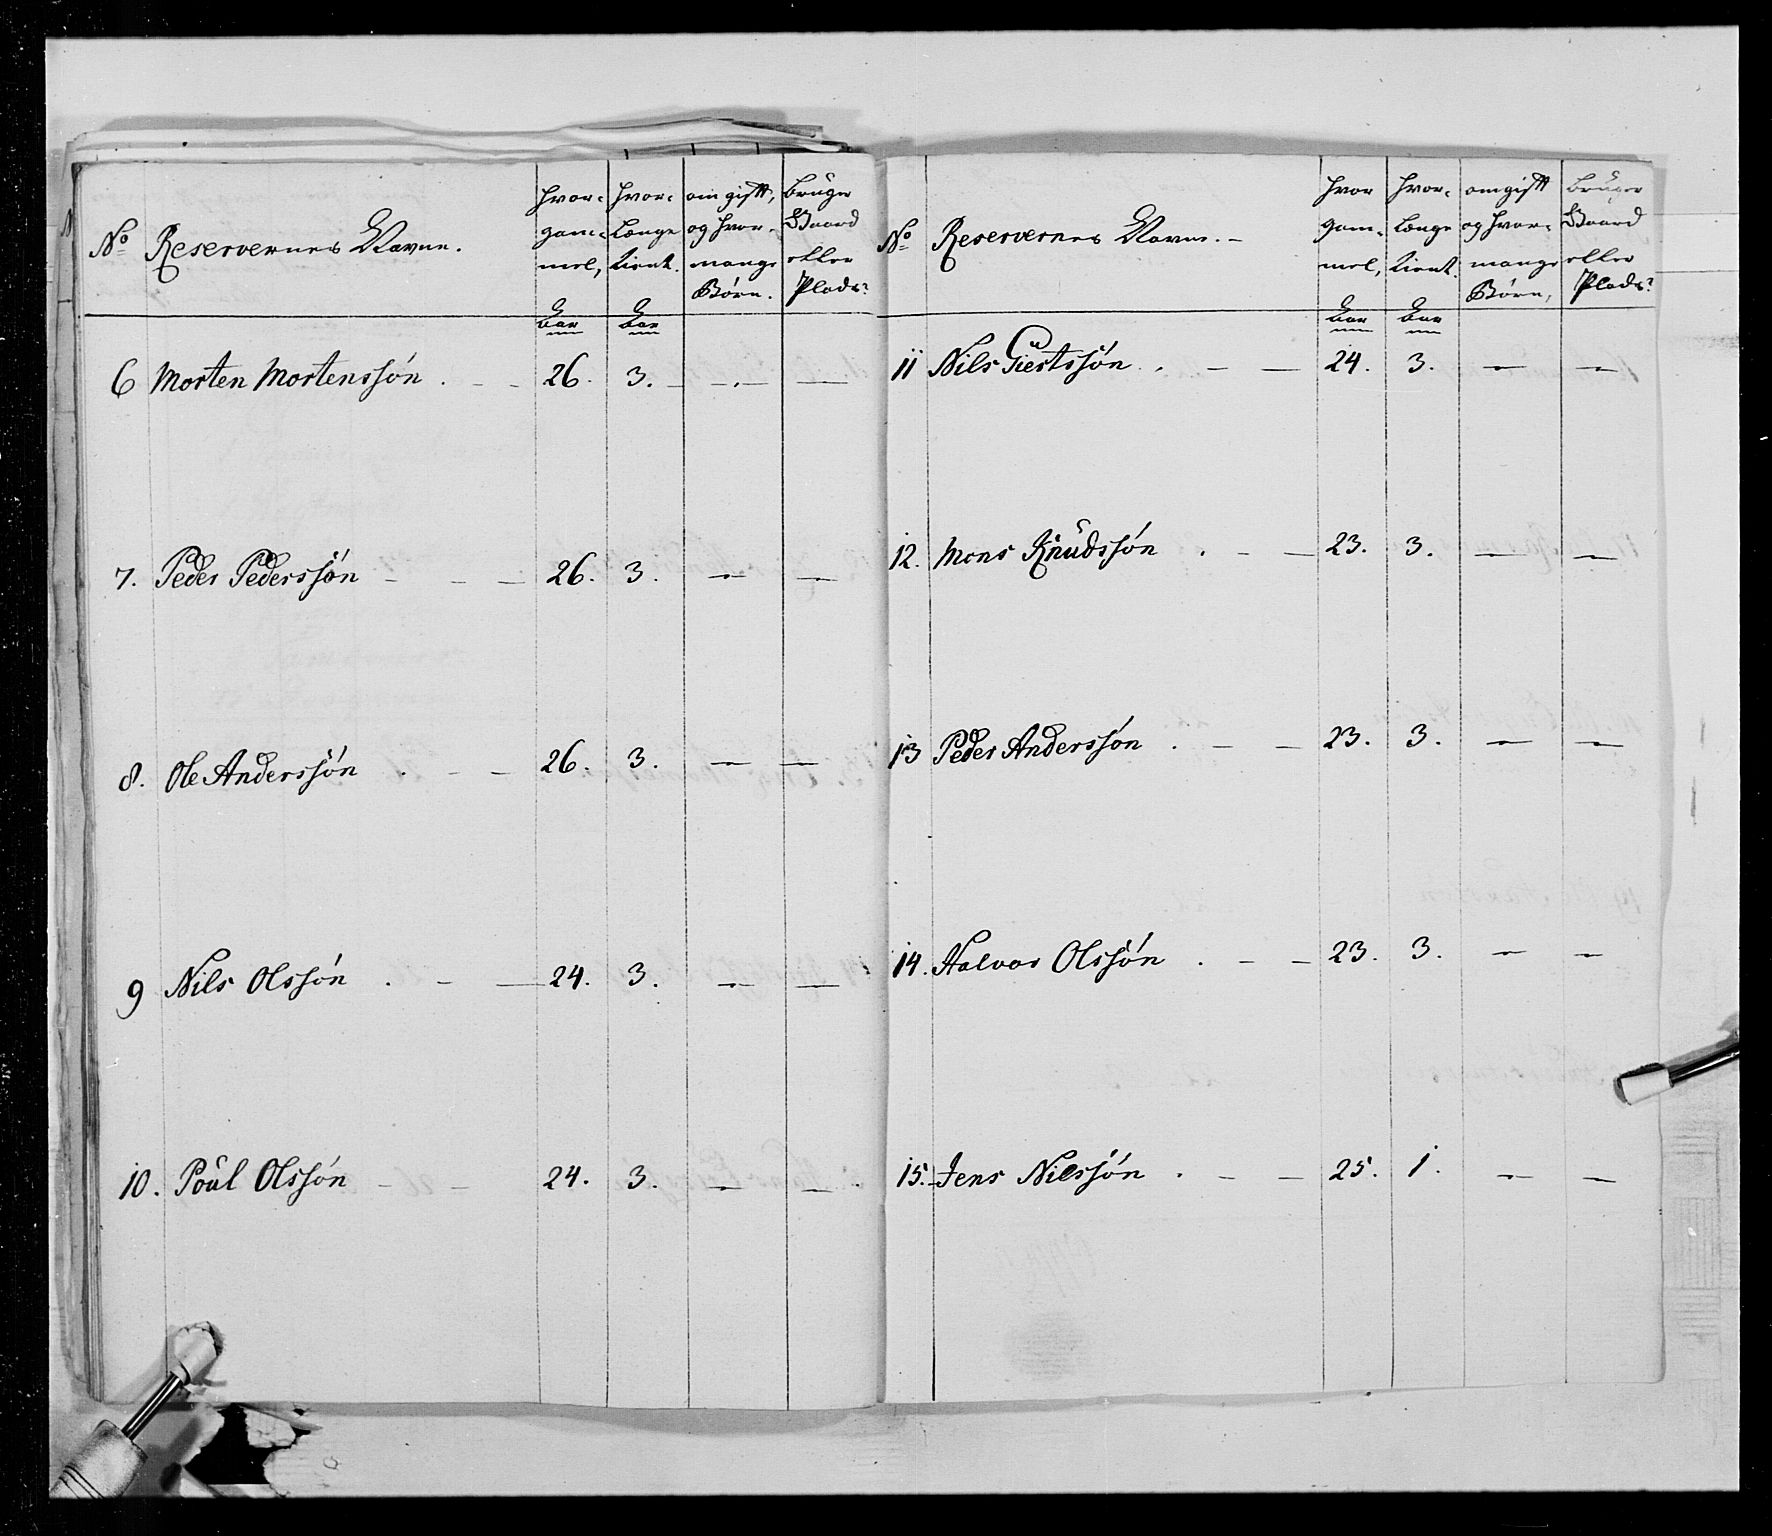 No Reservernes Navne. hvor- gam- mel, Aar hvor- Længe tient. Aar om gift, og hvor- mange Børn. bruger Gaard eller Plads?
6 Morten Mortenssøn . - - 26. 3. - - . - -
7. Peder Pederssøn - - - 26. 3. - -
8. Ole Anderssøn . - - 26. 3. - -
9 Nils Olssøn . - - 24. 3. - -
10. Poul Olssøn - - 24. 3. - -
No Reservernes Navne. - hvor gam- mel, Aar hvor- Længe tient. Aar om gift og hvor- mange Børn, bruger Gaard eller Plads?
11 Nils Giertssøn . - - 24. 3. - -
12. Mons Knudssøn . - - 23. 3. - -
13 Peder Anderssøn . - - 23. 3. - -
14. Halvor Olssøn . - - 23. 3. - -
15. Jens Nilssøn . - - 25. 1. - -